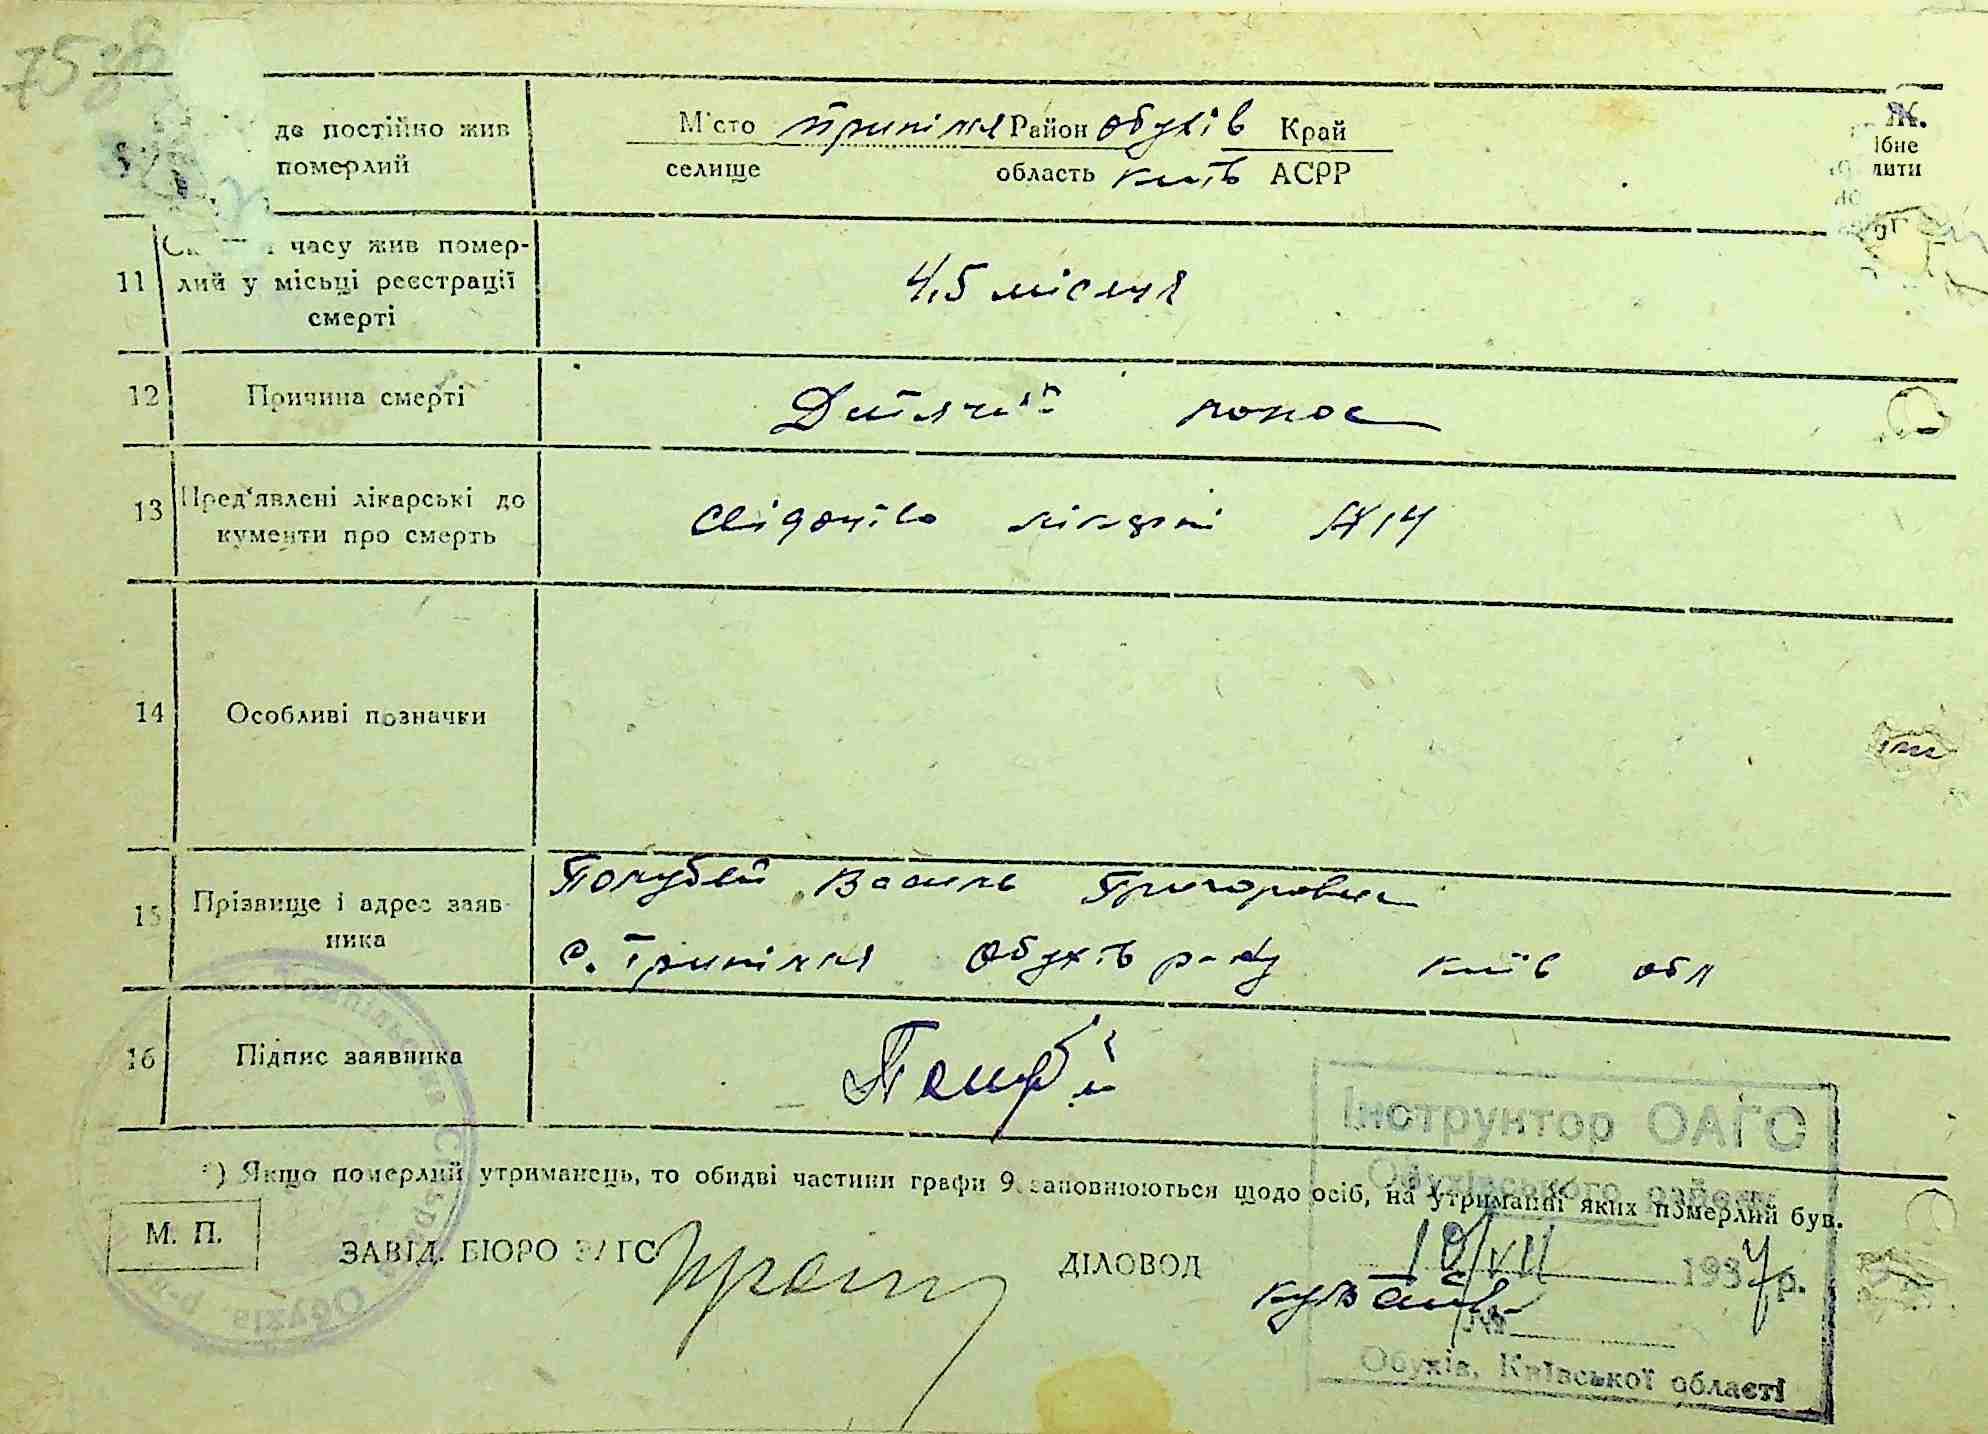 75
де постійно жив
померлий
М'сто Трипілля Район Обухів Край
селище область Київ АСРР
Ж.
11 часу жив помер-
лий у місьці реєстрації
смерті
4,5 місяця
12 Причина смерті
Дитячий понос
13 Пред'явлені лікарські до
кументи про смерть
Свідоцтво лікарні №14
14 Особливі позначки
15 Прізвище і адрес заяв-
ника
Василь Григорович
с. Трипілля Обухів р-ну Київ обл
16 Підпис заявника
*) Якщо померлий утриманець, то обидві частини графи 9 заповнюються щодо осіб, на утриманні яких померлий був.
М. П.
ЗАВІД. БЮРО ЗАГС
ДІЛОВОД
Інструктор ОАГС
Обухівського району
10/VII 1937 р.
№
Обухів, Київської області